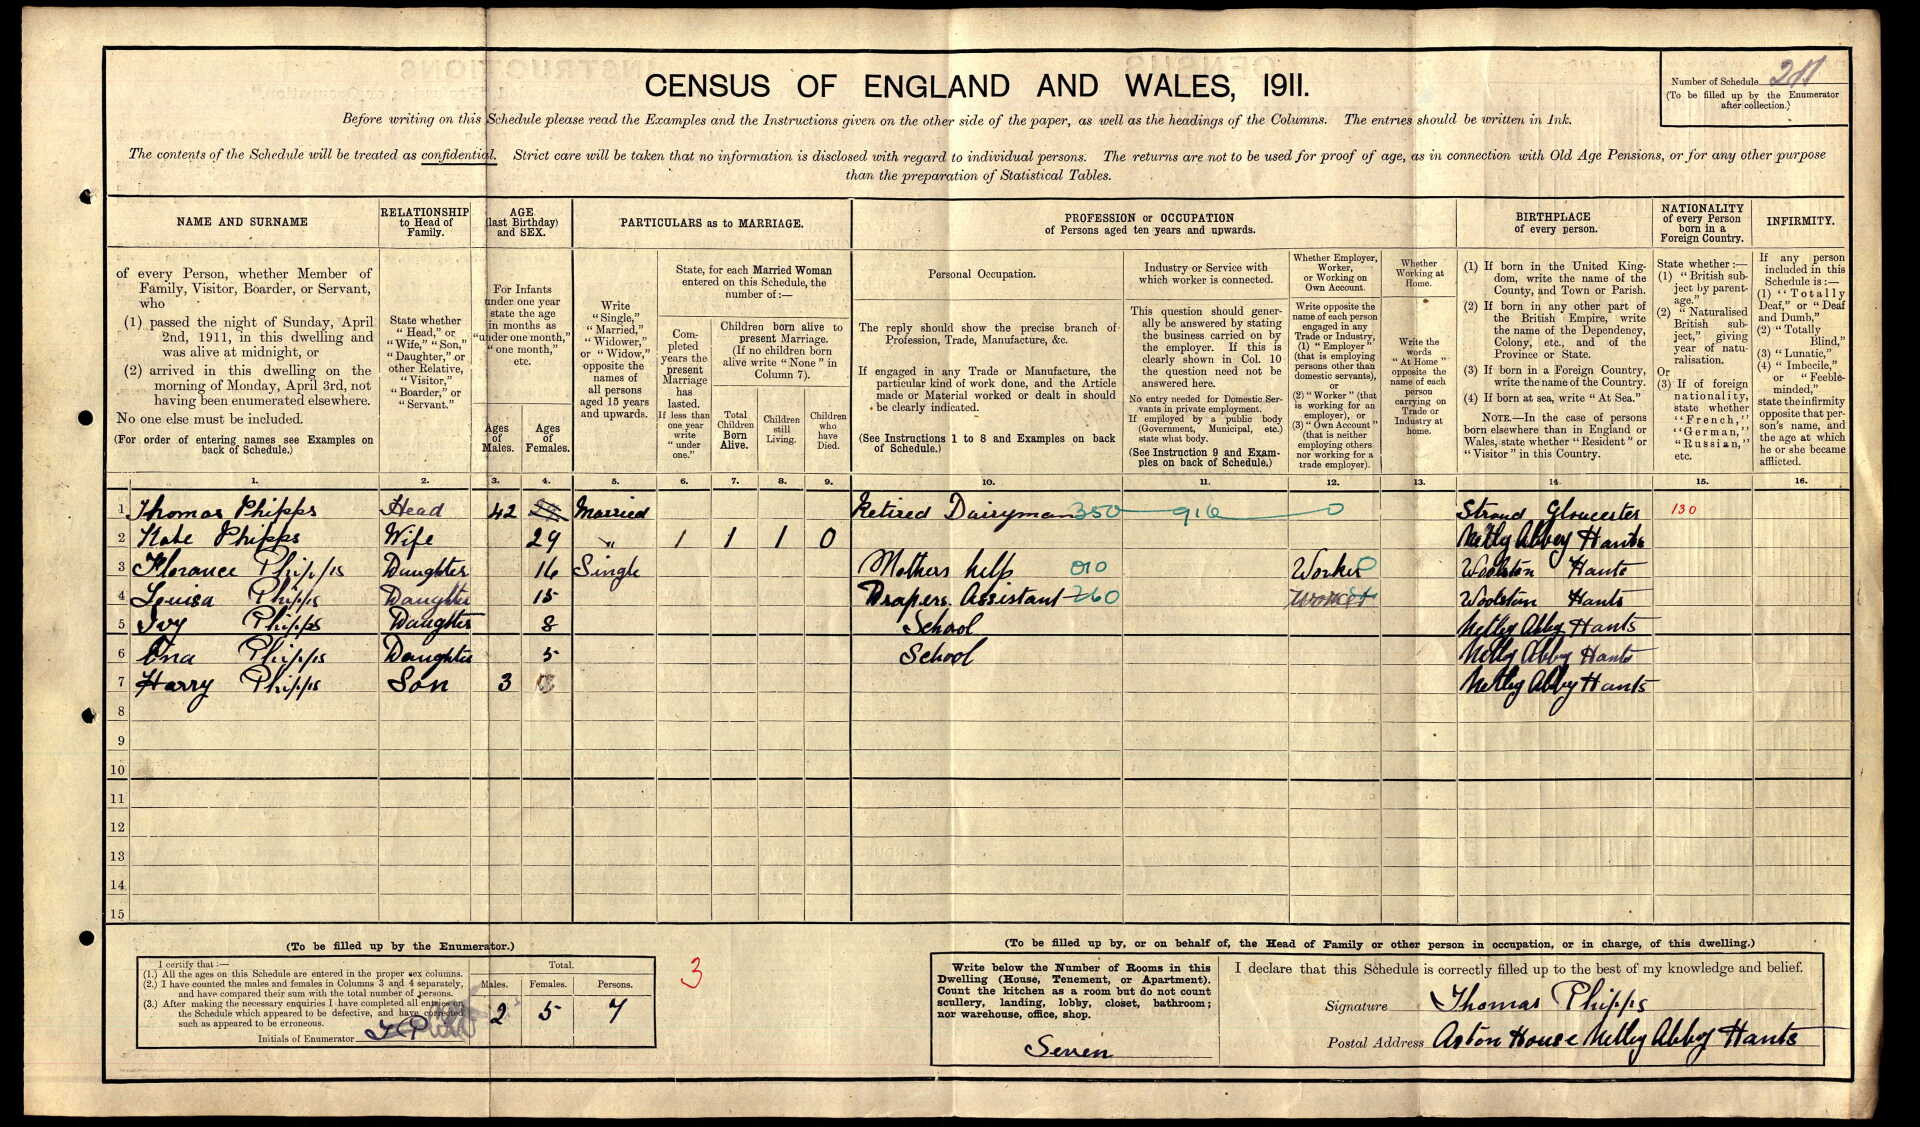 CENSUS OF ENGLAND AND WALES, 1911.
Number of Schedule
(To be filled up by the Enumerator
after collection.)
Before writing on this Schedule please read the Examples and the Instructions given on the other side of the paper, as well as the headings of the Columns. The entries should be written in Ink.
The contents of the Schedule will be treated as confidential. Strict care will be taken that no information is disclosed with regard to individual persons. The returns are not to be used for proof of age, as in connection with Old Age Pensions, or for any other purpose
than the preparation of Statistical Tables.
NAME AND SURNAME
of every Person, whether Member of
Family, Visitor, Boarder, or Servant,
who
(1) passed the night of Sunday, April
2nd, 1911, in this dwelling and
was alive at midnight, or
(2) arrived in this dwelling on the
morning of Monday, April 3rd, not
having been enumerated elsewhere.
No one else must be included.
(For order of entering names see Examples on
back of Schedule.)
RELATIONSHIP
to Head of
Family.
State whether
"Head," or
"Wife," "Son,"
"Daughter," or
other Relative,
"Visitor,"
"Boarder," or
"Servant."
AGE
(last Birthday)
and SEX.
For Infants
under one year
state the age
in months as
"under one month,"
"one month,"
etc.
Ages
of
Males.
Ages
of
Females.
PARTICULARS as to MARRIAGE.
Write
"Single,"
"Married,"
"Widower,"
or "Widow,"
opposite the
names of
all persons
aged 15 years
and upwards.
State, for each Married Woman
entered on this Schedule, the
number of:—
Com-
pleted
years the
present
Marriage
has
lasted.
If less than
one year
write
"under
one."
Children born alive to
present Marriage.
(If no children born
alive write "None" in
Column 7).
Total
Children
Born
Alive.
Children
still
Living.
Children
who
have
Died.
PROFESSION or OCCUPATION
of Persons aged ten years and upwards.
Personal Occupation.
The reply should show the precise branch of
Profession, Trade, Manufacture, &c.
If engaged in any Trade or Manufacture, the
particular kind of work done, and the Article
made or Material worked or dealt in should
be clearly indicated.
(See Instructions 1 to 8 and Examples on back
of Schedule.)
Industry or Service with
which worker is connected.
This question should gener-
ally be answered by stating
the business carried on by
the employer. If this is
clearly shown in Col. 10
the question need not be
answered here.
No entry needed for Domestic Ser-
vants in private employment.
If employed by a public body
(Government, Municipal, etc.)
state what body.
(See Instruction 9 and Exam-
ples on back of Schedule.)
Whether Employer,
Worker,
or Working on
Own Account.
Write opposite the
name of each person
engaged in any
Trade or Industry,
(1) "Employer"
(that is employing
persons other than
domestic servants),
or
(2) "Worker" (that
is working for an
employer), or
(3) "Own Account"
(that is neither
employing others
nor working for a
trade employer).
Whether
Working at
Home.
Write the
words
"At Home"
opposite the
name of each
person
carrying on
Trade or
Industry at
home.
BIRTHPLACE
of every person.
(1) If born in the United King-
dom, write the name of the
County, and Town or Parish.
(2) If born in any other part of
the British Empire, write
the name of the Dependency,
Colony, etc., and of the
Province or State.
(3) If born in a Foreign Country,
write the name of the Country.
(4) If born at sea, write "At Sea."
NOTE.—In the case of persons
born elsewhere than in England or
Wales, state whether "Resident" or
"Visitor" in this Country.
NATIONALITY
of every Person
born in a
Foreign Country.
State whether:—
(1) "British sub-
ject by parent-
age."
(2) "Naturalised
British sub-
ject," giving
year of natu-
ralisation.
Or
(3) If of foreign
nationality,
state whether
"French,"
"German,"
"Russian,"
etc.
INFIRMITY.
If any person
included in this
Schedule is:—
(1) "Totally
Deaf," or "Deaf
and Dumb,"
(2) "Totally
Blind,"
(3) "Lunatic,"
(4) "Imbecile,"
or "Feeble-
minded,"
state the infirmity
opposite that per-
son's name, and
the age at which
he or she became
afflicted.
1. 2. 3. 4. 5. 6. 7. 8. 9. 10. 11. 12. 13. 14. 15. 16.
1 Thomas Phipps Head 42 Married Retired Dairyman 350 916 0 Stroud Gloucester 130
2 Kate Phipps Wife 29 " 1 1 1 0 Netley Abbey Hants
3 Florance Phipps Daughter 16 Single Mothers help 010 Worker Woolston Hants
4 Louisa Phipps Daughter 15 Drapers Assistant 260 Worker Woolston Hants
5 Ivy Phipps Daughter 8 School Netley Abby Hants
6 Ena Phipps Daughter 5 School Netley Abby Hants
7 Harry Phipps Son 3 Netley Abby Hants
8
9
10
11
12
13
14
15
(To be filled up by the Enumerator.)
I certify that:—
(1.) All the ages on this Schedule are entered in the proper sex columns.
(2.) I have counted the males and females in Columns 3 and 4 separately,
and have compared their sum with the total number of persons.
(3.) After making the necessary enquiries I have completed all entries on
the Schedule which appeared to be defective, and have corrected
such as appeared to be erroneous.
Initials of Enumerator
Total.
Males. Females. Persons.
2 5 7
3
(To be filled up by, or on behalf of, the Head of Family or other person in occupation, or in charge, of this dwelling.)
Write below the Number of Rooms in this
Dwelling (House, Tenement, or Apartment).
Count the kitchen as a room but do not count
scullery, landing, lobby, closet, bathroom;
nor warehouse, office, shop.
Seven
I declare that this Schedule is correctly filled up to the best of my knowledge and belief.
Signature Thomas Phipps
Postal Address Aston House Netley Abbey Hants